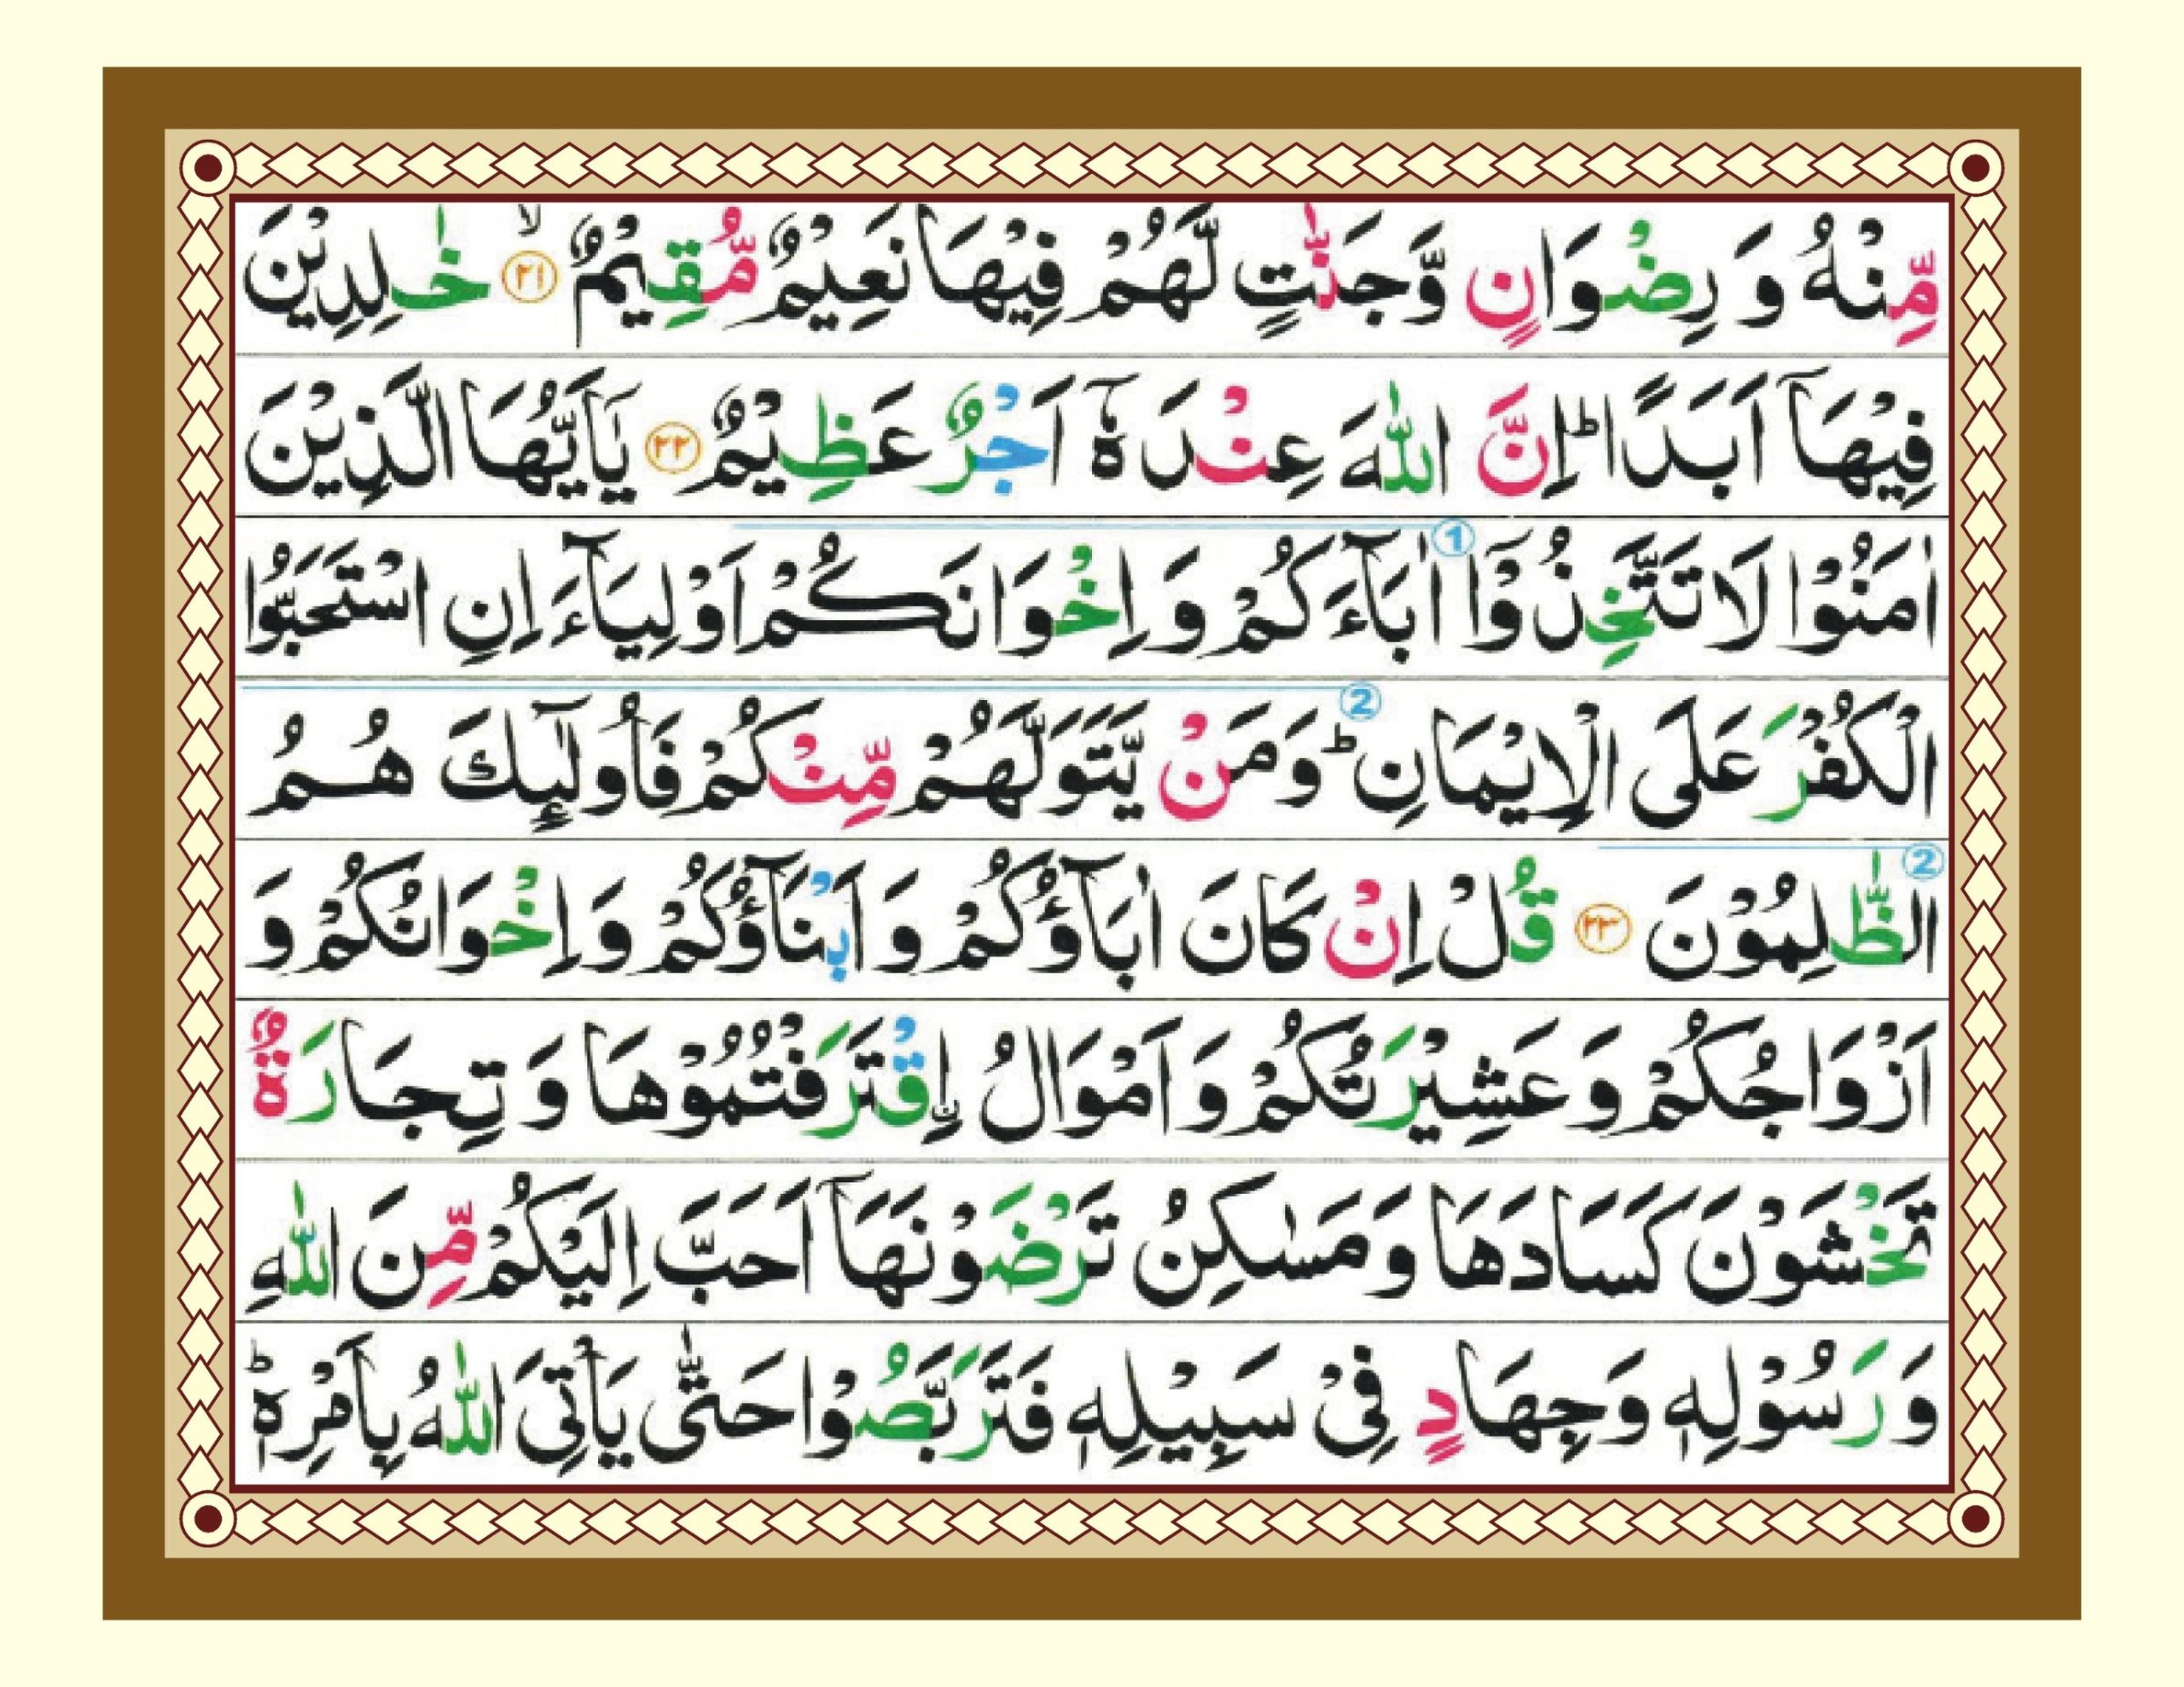 مِّنْهُ وَ رِضْوَانٍ وَّجَنّٰتٍ لَّهُمْ فِيْهَا نَعِيْمٌ مُّقِيْمٌ ۙ ﴿۲۱﴾ خٰلِدِيْنَ
فِيْهَاۤ اَبَدًا ؕ اِنَّ اللّٰهَ عِنْدَهٗۤ اَجْرٌ عَظِيْمٌ ﴿۲۲﴾ يٰۤاَيُّهَا الَّذِيْنَ
اٰمَنُوْا لَا تَتَّخِذُوْۤا ① اٰبَآءَكُمْ وَ اِخْوَانَكُمْ اَوْلِيَآءَ اِنِ اسْتَحَبُّوا
الْكُفْرَ عَلَى الْاِيْمَانِ ؕ ② وَمَنْ يَّتَوَلَّهُمْ مِّنْكُمْ فَاُولٰٓئِكَ هُمُ
② الظّٰلِمُوْنَ ﴿۲۳﴾ قُلْ اِنْ كَانَ اٰبَآؤُكُمْ وَ اَبْنَآؤُكُمْ وَ اِخْوَانُكُمْ وَ
اَزْوَاجُكُمْ وَ عَشِيْرَتُكُمْ وَ اَمْوَالُ ۨاِقْتَرَفْتُمُوْهَا وَ تِجَارَةٌ
تَخْشَوْنَ كَسَادَهَا وَ مَسٰكِنُ تَرْضَوْنَهَاۤ اَحَبَّ اِلَيْكُمْ مِّنَ اللّٰهِ
وَ رَسُوْلِهٖ وَ جِهَادٍ فِىْ سَبِيْلِهٖ فَتَرَبَّصُوْا حَتّٰى يَاْتِىَ اللّٰهُ بِاَمْرِهٖ ؕ